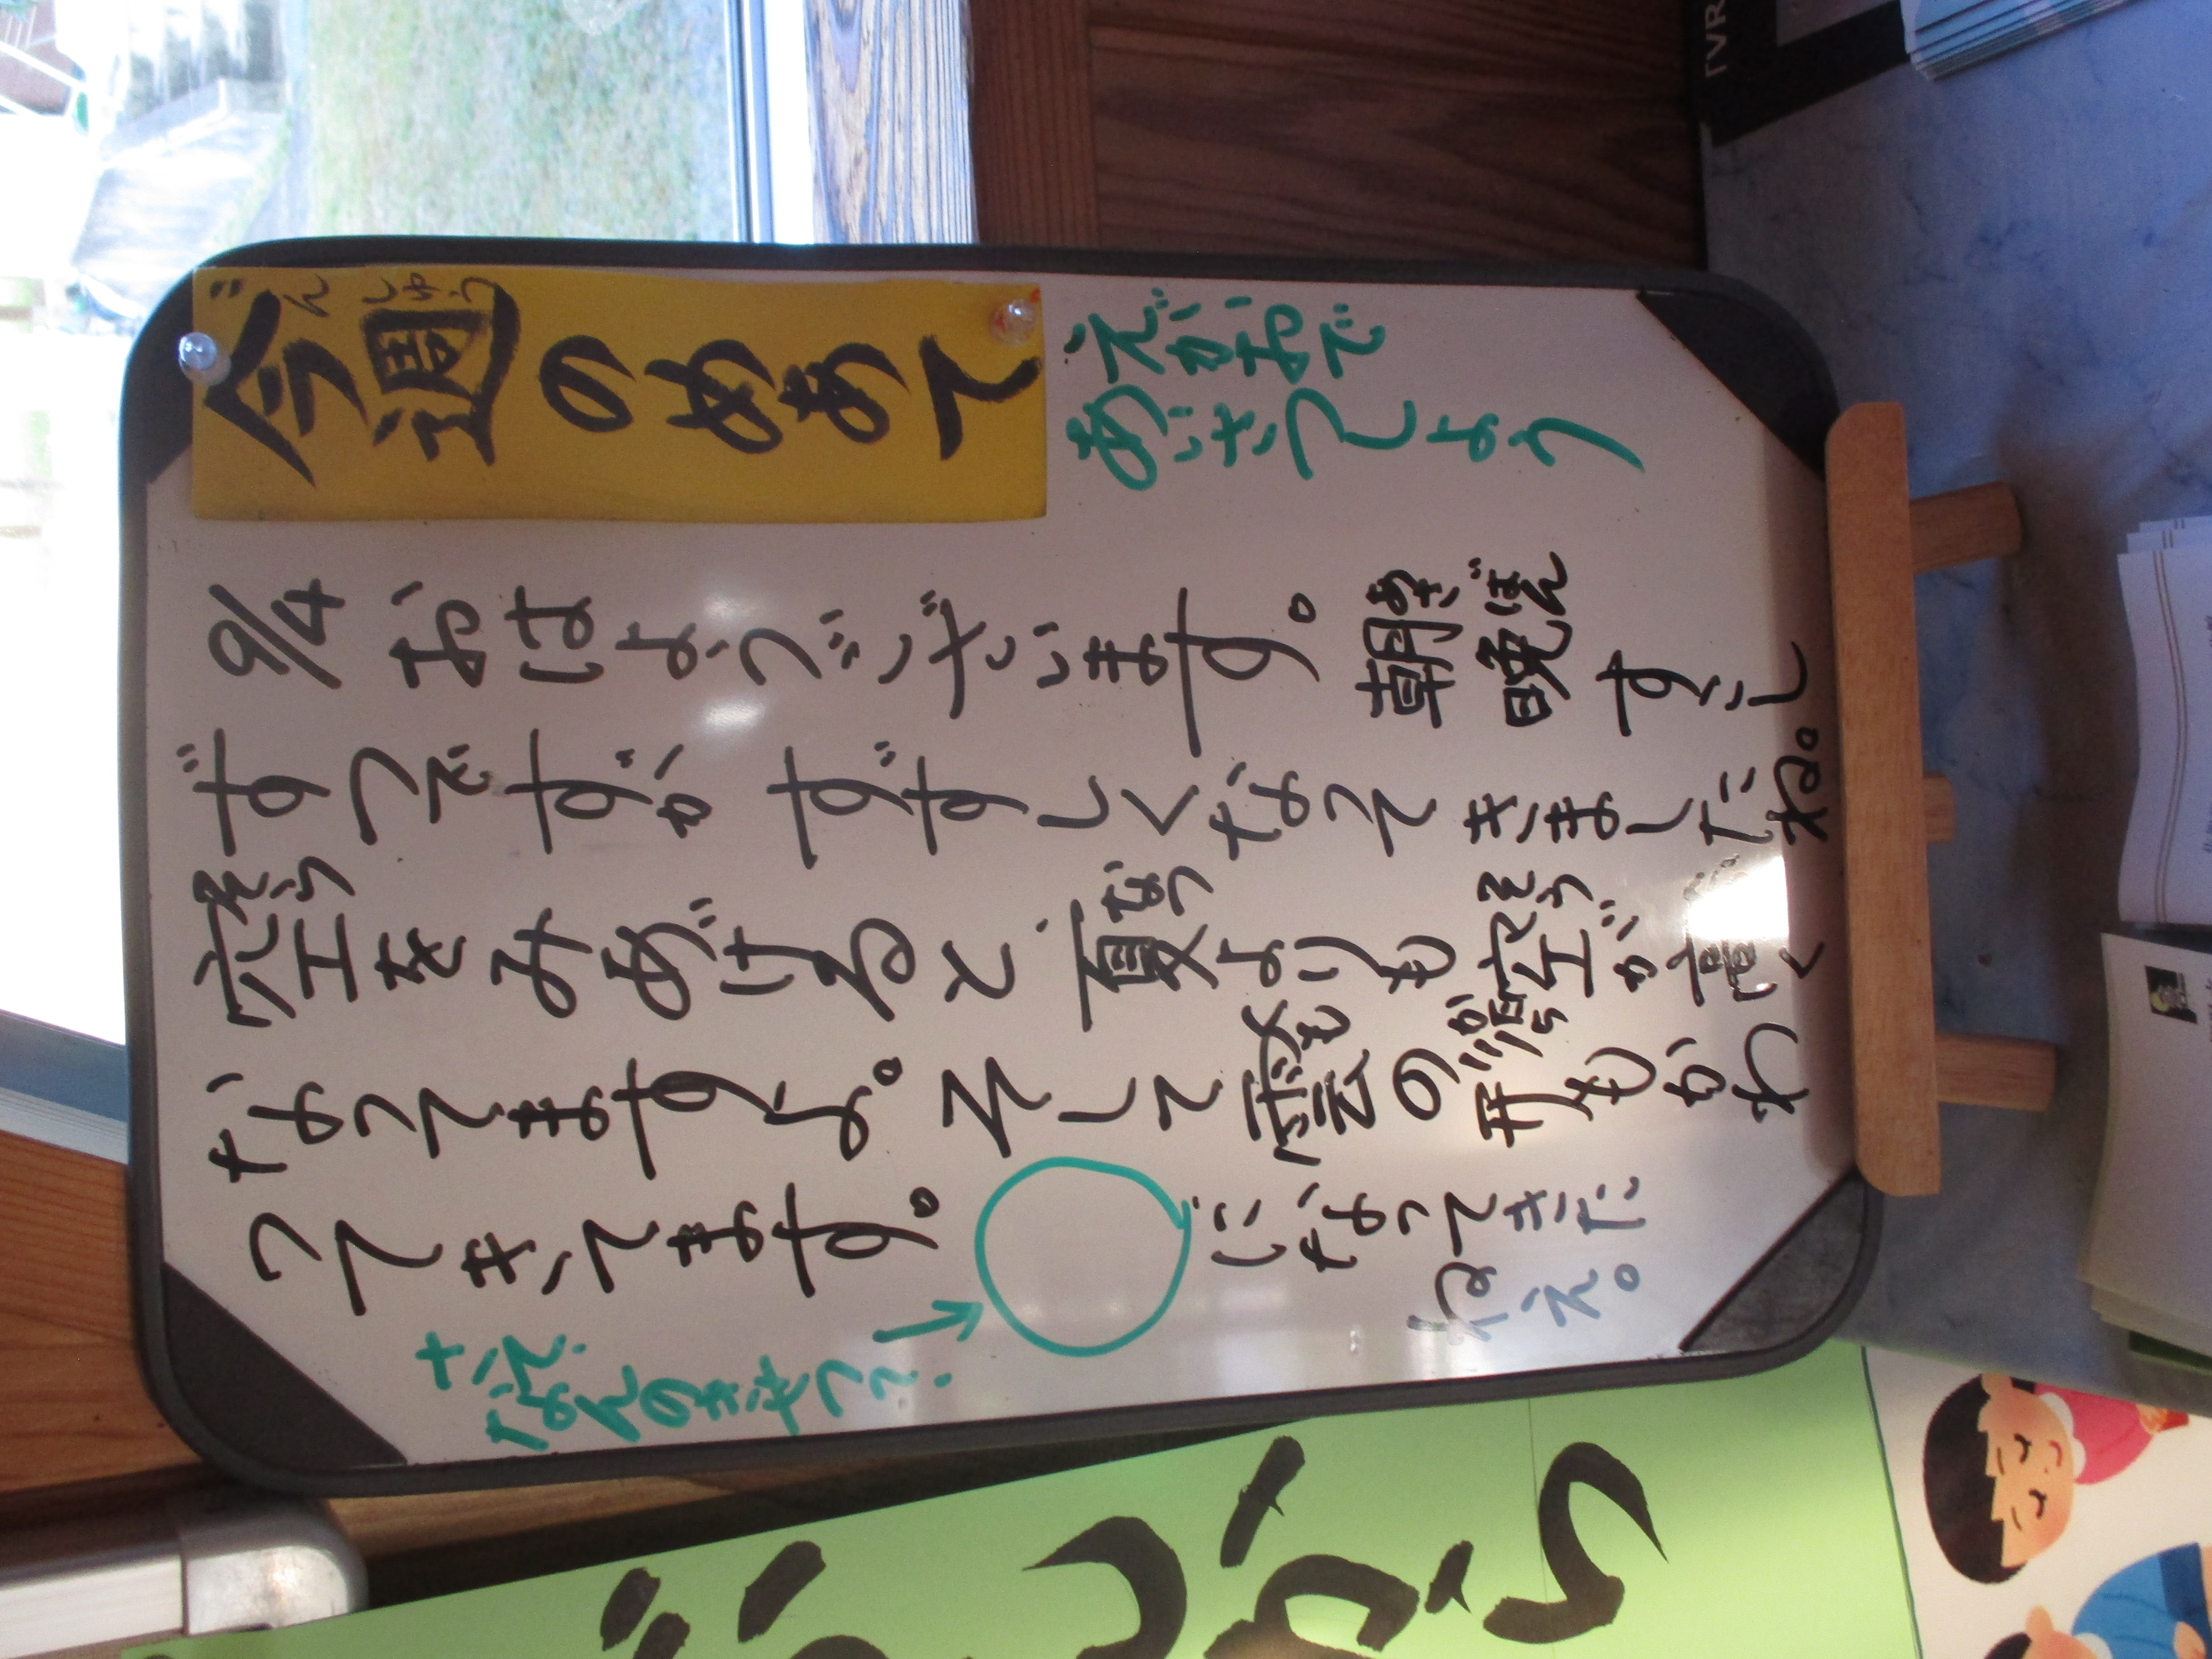 今週のめあて
えがおで
あいさつしよう
9/4 おはようございます。朝晩すこし
ずつですが すずしくなってきましたね。
空をみあげると、夏よりも空が高く
なってますよ。そして雲の形もかわ
ってきてます。 になってきた
ねえ。
なんのきせつ?